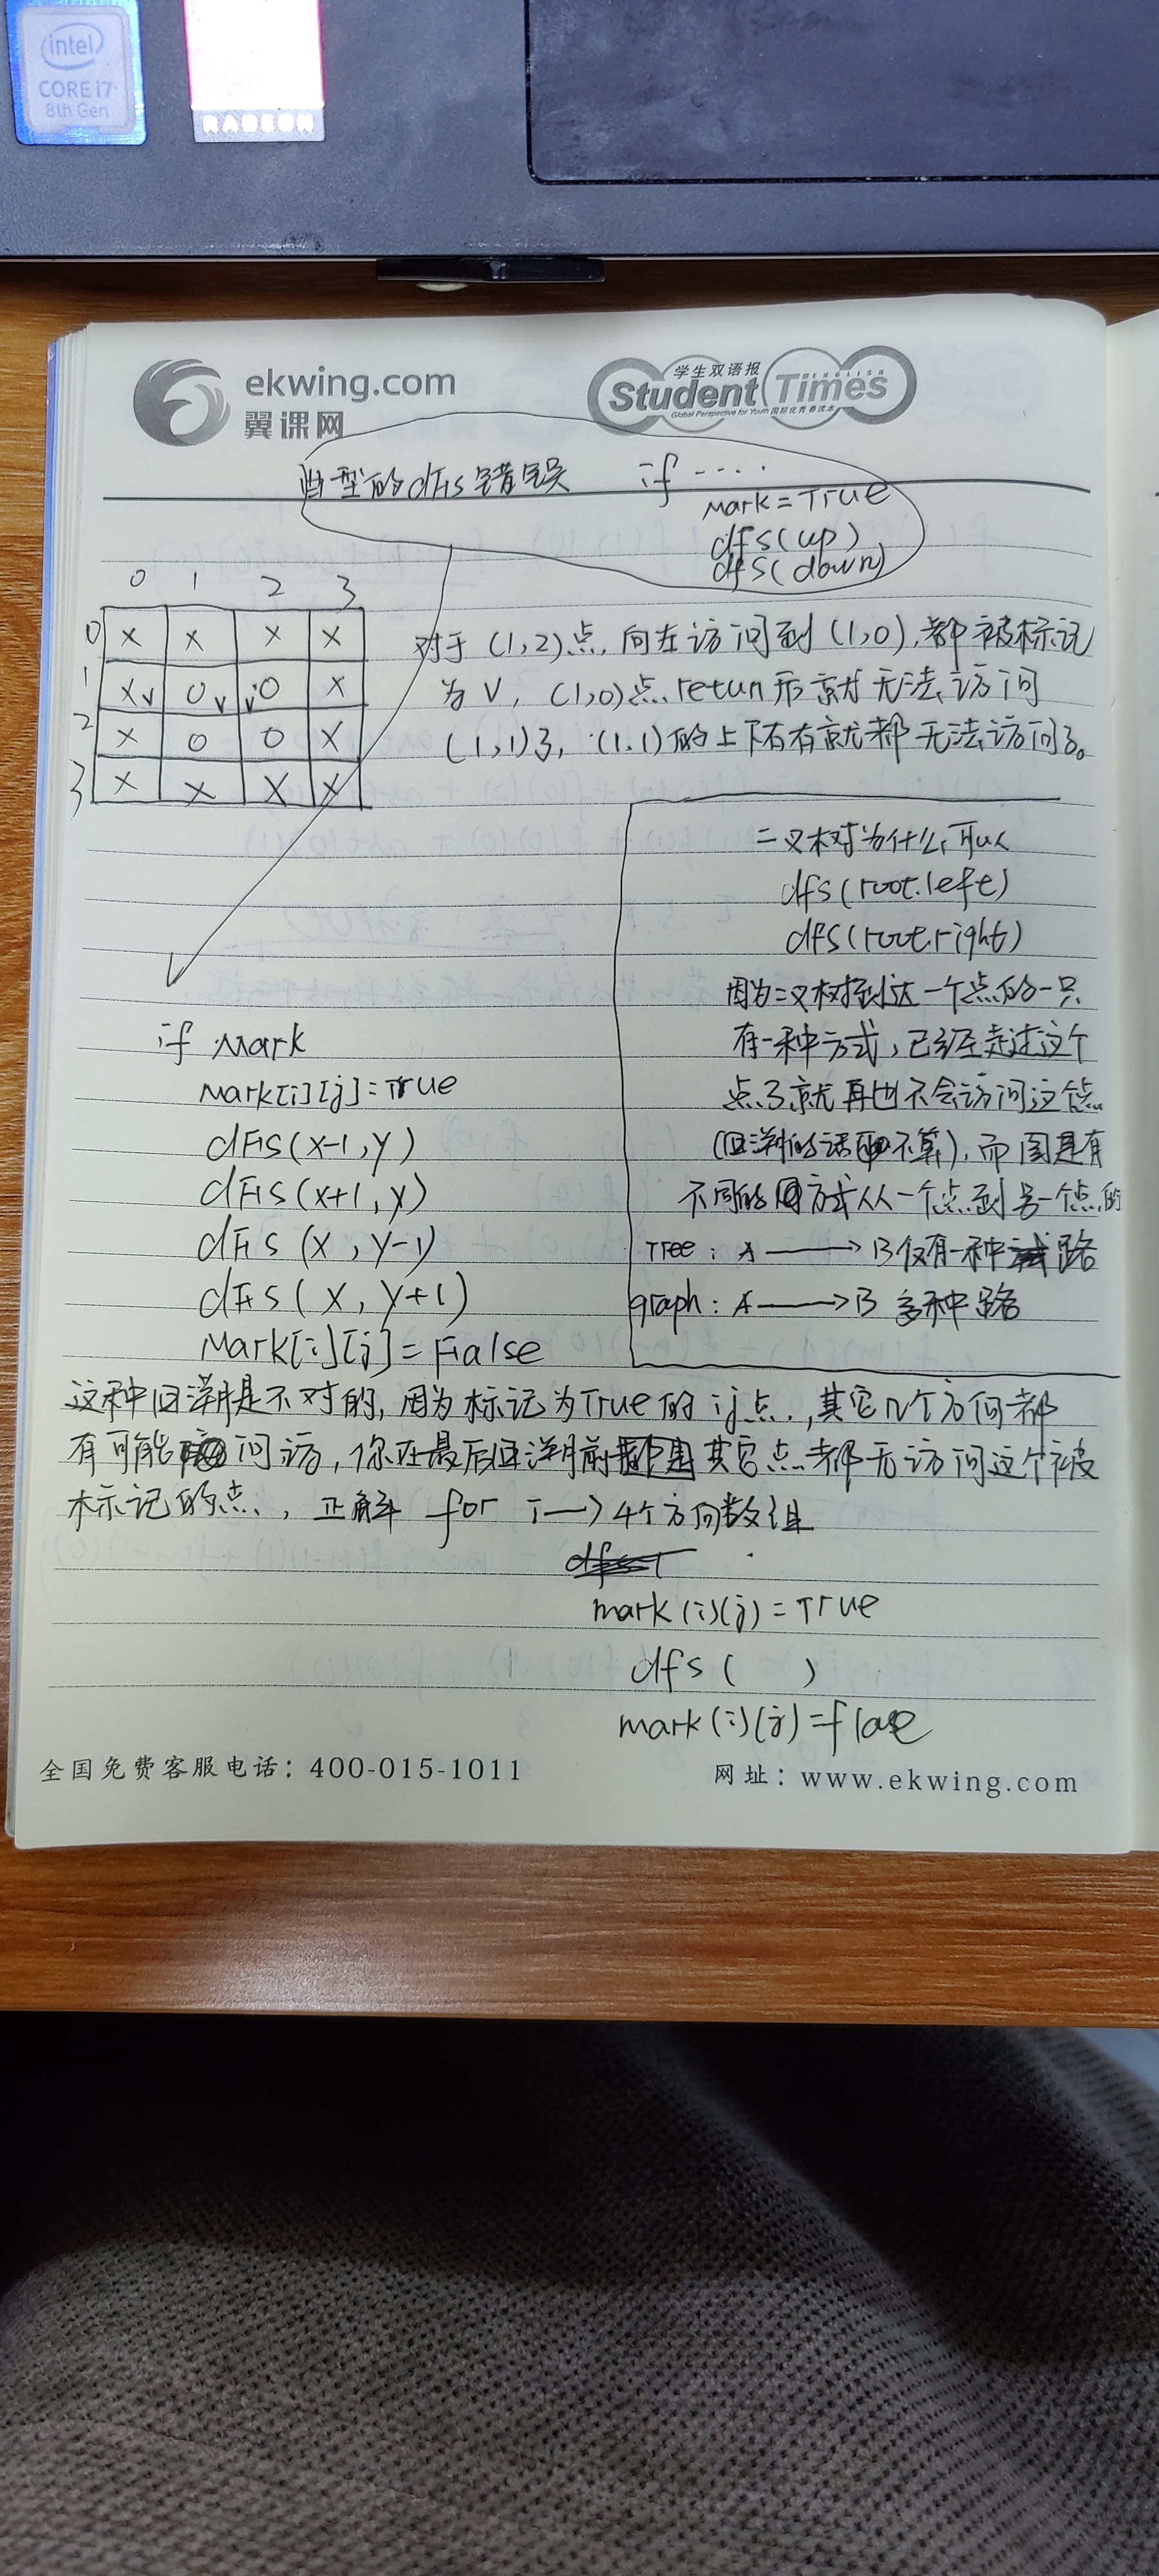 intel
CORE i7
8th Gen
RADEON
ekwing.com
翼课网
学生双语报
Student Times
ENGLISH
Global Perspective for Youth 国际化青春读本
典型的dfs错误 if ----.
mark=True
dfs(up)
dfs(down)
0 1 2 3
0 X X X X
1 X v O v v O X
2 X O O X
3 X X X X
对于 (1,2)点,向左访问到(1,0),都被标记
为 V, (1,0)点 retun 形 就 无法访问
(1,1)了, (1.1)的上下右有就都无法访问了。
二叉树为什么可以
dfs(root.left)
dfs(root.right)
因为二叉树到达一个点的一只
有一种方式,已经走过这个
点了就再也不会访问这个点
(回溯的话 不算),而图是有
不同的 方式从一个点到另一个点的
Tree: A ——> B 仅有一种 路
graph: A ——> B 多种路
if Mark
Mark[i][j]=True
dfs(x-1,y)
dfs(x+1,y)
dfs(x,y-1)
dfs(x,y+1)
Mark[i][j]=False
这种回溯是不对的,因为标记为True的 ij点.,其它几个方向都
有可能 问访,你在最后回溯前 其它点都无访问这个被
标记的点, 正解 for i—>4个方向数组
mark(i)(j)=True
dfs( )
mark(i)(j)=flase
全国免费客服电话:400-015-1011
网址:www.ekwing.com